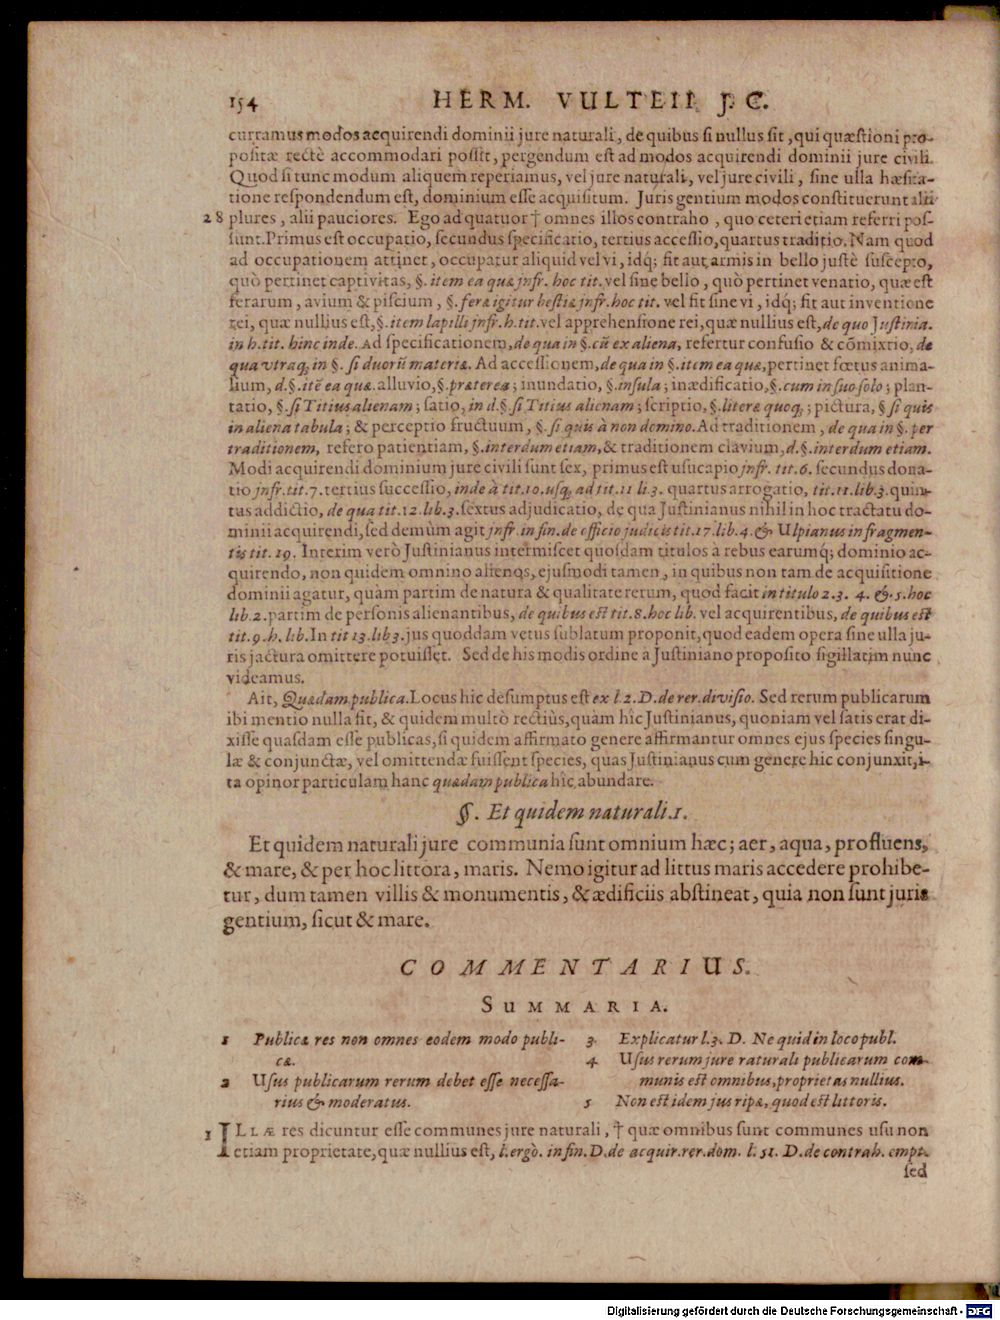 154 HERM. VULTEII J. C.
curramus modos acquirendi dominii jure naturali, de quibus si nullus sit, qui quæstioni pro-
positæ rectè accommodari possit, pergendum est ad modos acquirendi dominii jure civili.
Quod si tunc modum aliquem reperiamus, vel jure naturali, vel jure civili, sine ulla hæsita-
tione respondendum est, dominium esse acquisitum. Juris gentium modos constituerunt alii
28 plures, alii pauciores. Ego ad quatuor † omnes illos contraho, quo ceteri etiam referri pos-
sunt. Primus est occupatio, secundus specificatio, tertius accessio, quartus traditio. Nam quod
ad occupationem attinet, occupatur aliquid vel vi, idq; fit aut armis in bello justè suscepto,
quò pertinet captivitas, §. item ea quæ jnfr. hoc tit. vel sine bello, quò pertinet venatio, quæ est
ferarum, avium & piscium, §. feræ igitur bestiæ jnfr. hoc tit. vel fit sine vi, idq; fit aut inventione
rei, quæ nullius est, §. item lapilli jnfr. h. tit. vel apprehensione rei, quæ nullius est, de quo Justinia.
in h. tit. hinc inde. Ad specificationem, de qua in §. cũ ex aliena, refertur confusio & cõmixtio, de
qua utraq; in §. si duorũ materiæ. Ad accessionem, de qua in §. item ea quæ, pertinet fœtus anima-
lium, d. §. itẽ ea quæ. alluvio, §. præterea; inundatio, §. insula; inædificatio, §. cum in suo solo; plan-
tatio, §. si Titius alienam; satio, in d. §. si Titius alienam; scriptio, §. literæ quoq; ; pictura, § si quis
in aliena tabula; & perceptio fructuum, §. si quis à non domino. Ad traditionem, de qua in §. per
traditionem, refero patientiam, §. interdum etiam, & traditionem clavium, d. §. interdum etiam.
Modi acquirendi dominium jure civili sunt sex, primus est usucapio jnfr. tit. 6. secundus dona-
tio jnfr. tit. 7. tertius successio, inde à tit. 10. usq; ad tit. 11 li. 3. quartus arrogatio, tit. 11. lib. 3. quin-
tus addictio, de qua tit. 12. lib. 3. sextus adjudicatio, de qua Justinianus nihil in hoc tractatu do-
minii acquirendi, sed demùm agit jnfr. in fin. de officio judicis tit. 17. lib. 4. & Ulpianus in fragmen-
tis tit. 19. Interim verò Justinianus intermiscet quosdam titulos à rebus earumq; dominio ac-
quirendo, non quidem omnino alienos, ejusmodi tamen, in quibus non tam de acquisitione
dominii agatur, quàm partim de natura & qualitate rerum, quod facit in titulo 2. 3. 4. & 5. hoc
lib. 2. partim de personis alienantibus, de quibus est tit. 8. hoc lib. vel acquirentibus, de quibus est
tit. 9. h. lib. In tit 13. lib 3. jus quoddam vetus sublatum proponit, quod eadem opera sine ulla ju-
ris jactura omittere potuisset. Sed de his modis ordine à Justiniano proposito sigillatim nunc
videamus.
Ait, Quædam publica. Locus hic desumptus est ex l. 2. D. de rer. divisio. Sed rerum publicarum
ibi mentio nulla fit, & quidem multò rectiùs, quàm hîc Justinianus, quoniam vel satis erat di-
xisse quasdam esse publicas, si quidem affirmato genere affirmantur omnes ejus species singu-
læ & conjunctæ, vel omittendæ fuissent species, quas Justinianus cum genere hic conjunxit, i-
ta opinor particulam hanc quædam publica hîc abundare.
§. Et quidem naturali. 1.
Et quidem naturali jure communia sunt omnium hæc; aer, aqua, profluens,
& mare, & per hoc littora, maris. Nemo igitur ad littus maris accedere prohibe-
tur, dum tamen villis & monumentis, & ædificiis abstineat, quia non sunt juris
gentium, sicut & mare.
COMMENTARIUS.
SUMMARIA.
1 Publicæ res non omnes eodem modo publi-
cæ.
2 Usus publicarum rerum debet esse necessa-
rius & moderatus.
3. Explicatur l. 3. D. Ne quid in loco publ.
4. Usus rerum jure raturali publicarum com-
munis est omnibus, proprietas nullius.
5 Non est idem jus ripæ, quod est littoris.
1 ILLÆ res dicuntur esse communes jure naturali, † quæ omnibus sunt communes usu non
etiam proprietate, quæ nullius est, l. ergò. in fin. D. de acquir. rer. dom. l. 51. D. de contrah. empt.
sed
Digitalisierung gefördert durch die Deutsche Forschungsgemeinschaft - DFG